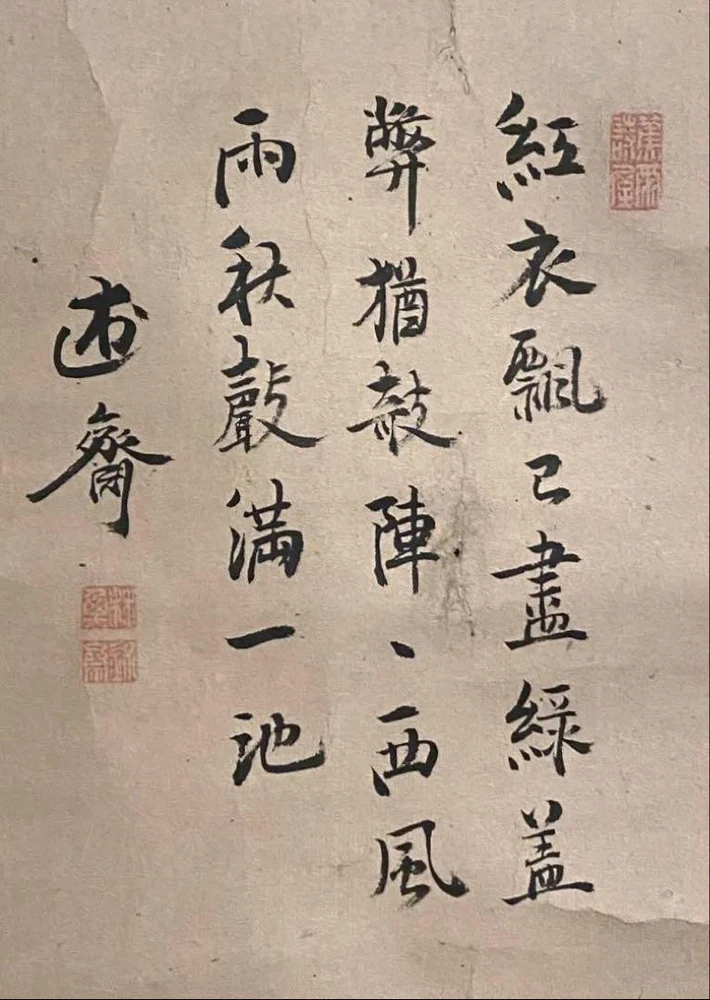 紅衣飄已盡綠盖
弊猶攲陣、西風
雨秋聲滿一池
逋齋